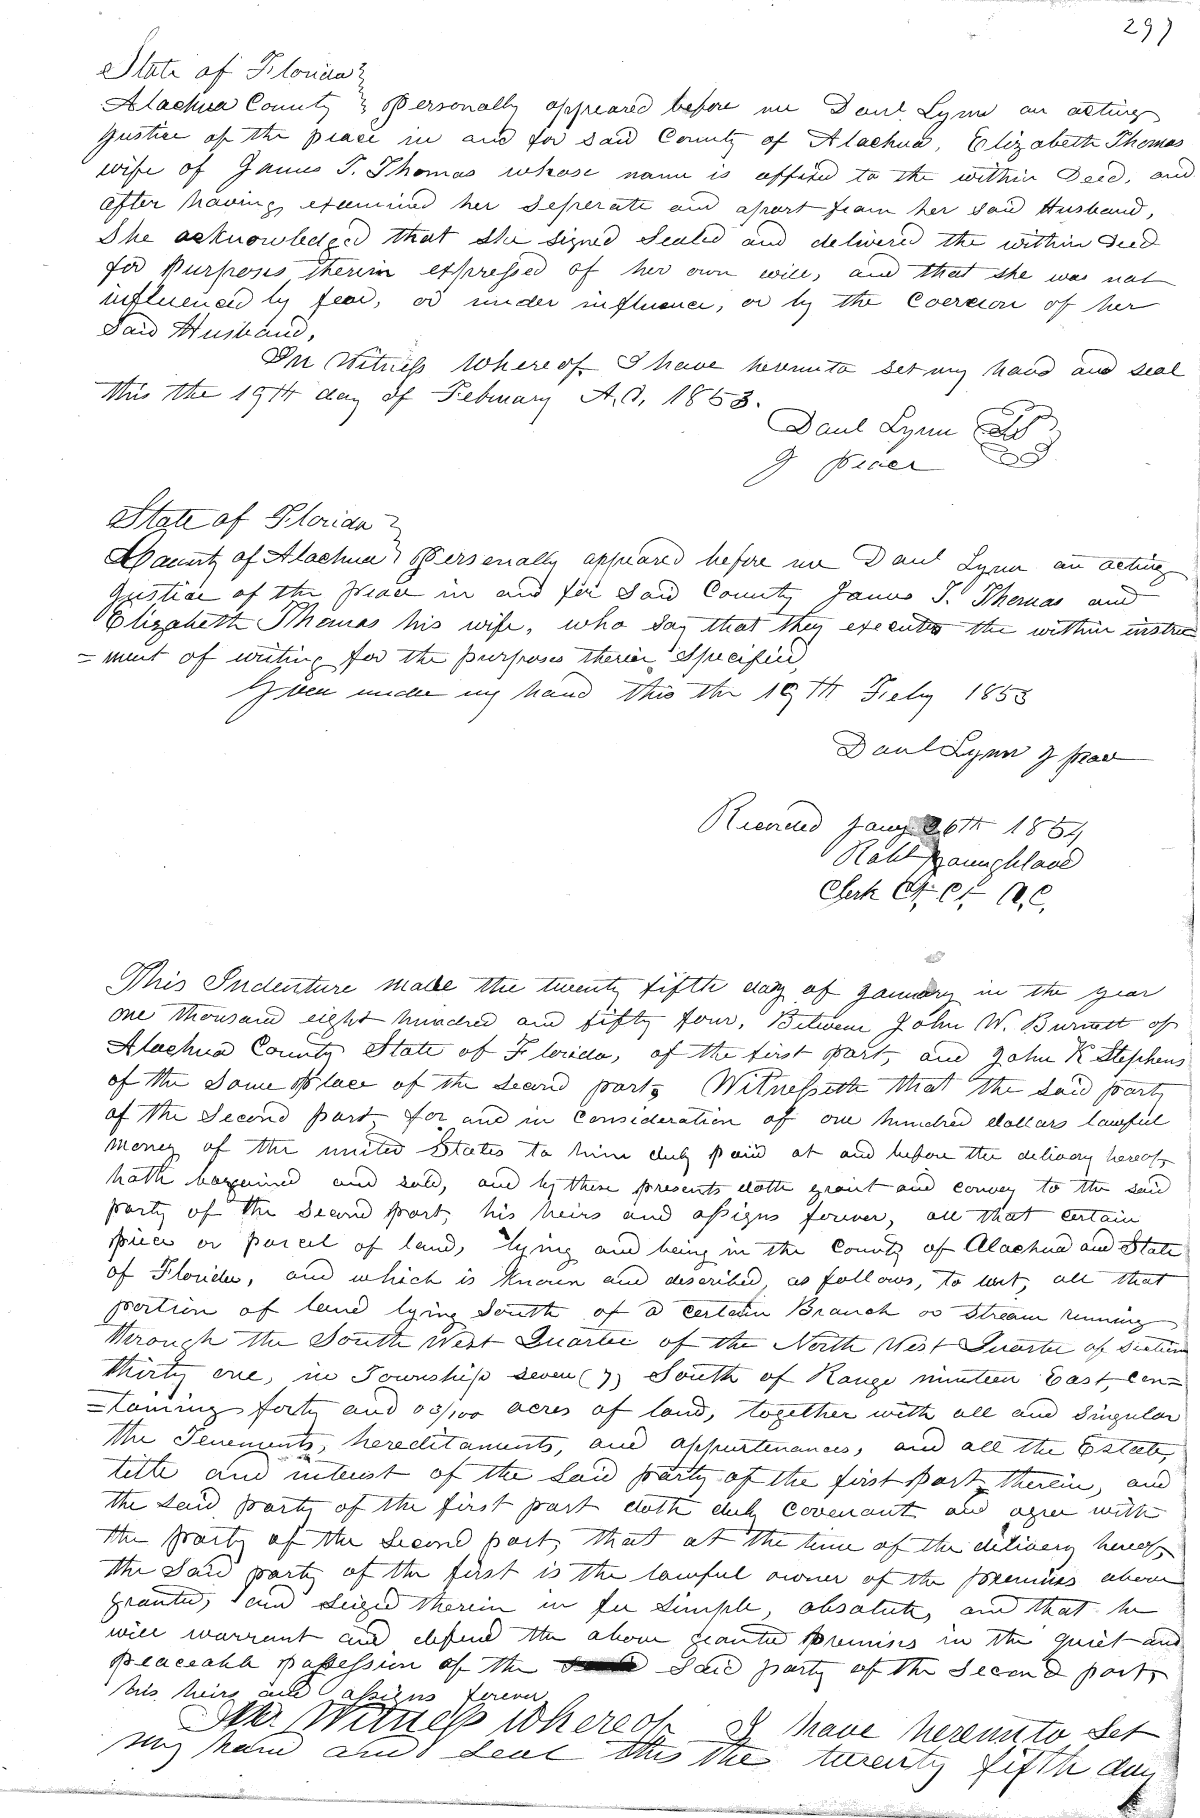 297
State of Florida
Alachua County Personally appeared before me Danl. Lynn an acting
Justice of the peace in and for said County of Alachua, Elizabeth Thomas
wife of James T. Thomas whose name is affixed to the within Deed, and
after having examined her seperate and apart from her said Husband,
She acknowledged that she signed Sealed and delivered the within Deed
for purposes therein expressed of her own will, and that she was not
influenced by fear, or under influence, or by the Coercion of her
Said Husband,
In Witness Whereof I have hereunto set my hand and seal
this the 19th day of February A.D. 1853.
Danl Lynn LS
J peace
State of Florida
County of Alachua Personally appeared before me Danl Lynn an acting
Justice of the peace in and for said County James T. Thomas and
Elizabeth Thomas his wife, who say that they executed the within instru
=ment of writing for the purposes therein Specified,
Given under my hand this the 19th Feby 1853
Danl Lynn J peace
Recorded Jany 26th 1854
Robt
Clerk Ct. Ct. A.C.
This Indenture made the twenty fifth day of January in the year
one thousand eight hundred and fifty four, Between John W. Burnett of
Alachua County State of Florida, of the first part, and John K Stephens
of the same place of the second part, Witnesseth that the said party
of the Second part, for and in consideration of one hundred dollars lawful
money of the united States to him duly paid at and before the delivery hereof,
hath bargained and sold, and by these presents doth grant and convey to the said
party of the second part, his heirs and assigns forever, all that certain
piece or parcel of land, lying and being in the County of Alachua and State
of Florida, and which is known and described, as follows, to wit, all that
portion of land lying South of a certain Branch or Stream running
through the South West Quarter of the North West Quarter of Section
thirty one, in Township seven (7) South of Range nineteen East, con=
=taining forty and 03/100 acres of land, together with all and singular
the Tenements, hereditaments, and appurtenances, and all the Estate,
title and interest of the said party of the first part therein, and
the said party of the first part doth duly covenant and agree with
the party of the second part, that at the time of the delivery hereof,
the said party of the first is the lawful owner of the premises above
granted, and seized therein in fee simple, absolute, and that he
will warrant and defend the above granted premises in the quiet and
peaceable possession of the said party of the second part,
his heirs and assigns forever
In Witness whereof I have hereunto set
my hand and seal this the twenty fifth day